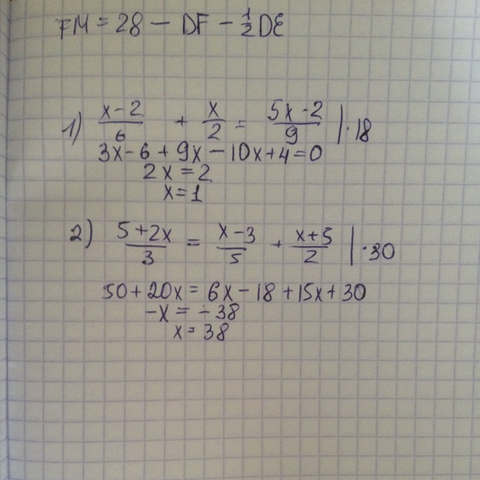 FM = 28 − DF − 1/2 DE
1) (x−2)/6 + x/2 = (5x−2)/9 | ·18
3x−6 + 9x − 10x+4=0
2x = 2
x=1
2) (5+2x)/3 = (x−3)/5 + (x+5)/2 | ·30
50+20x = 6x−18+15x+30
−x = −38
x = 38